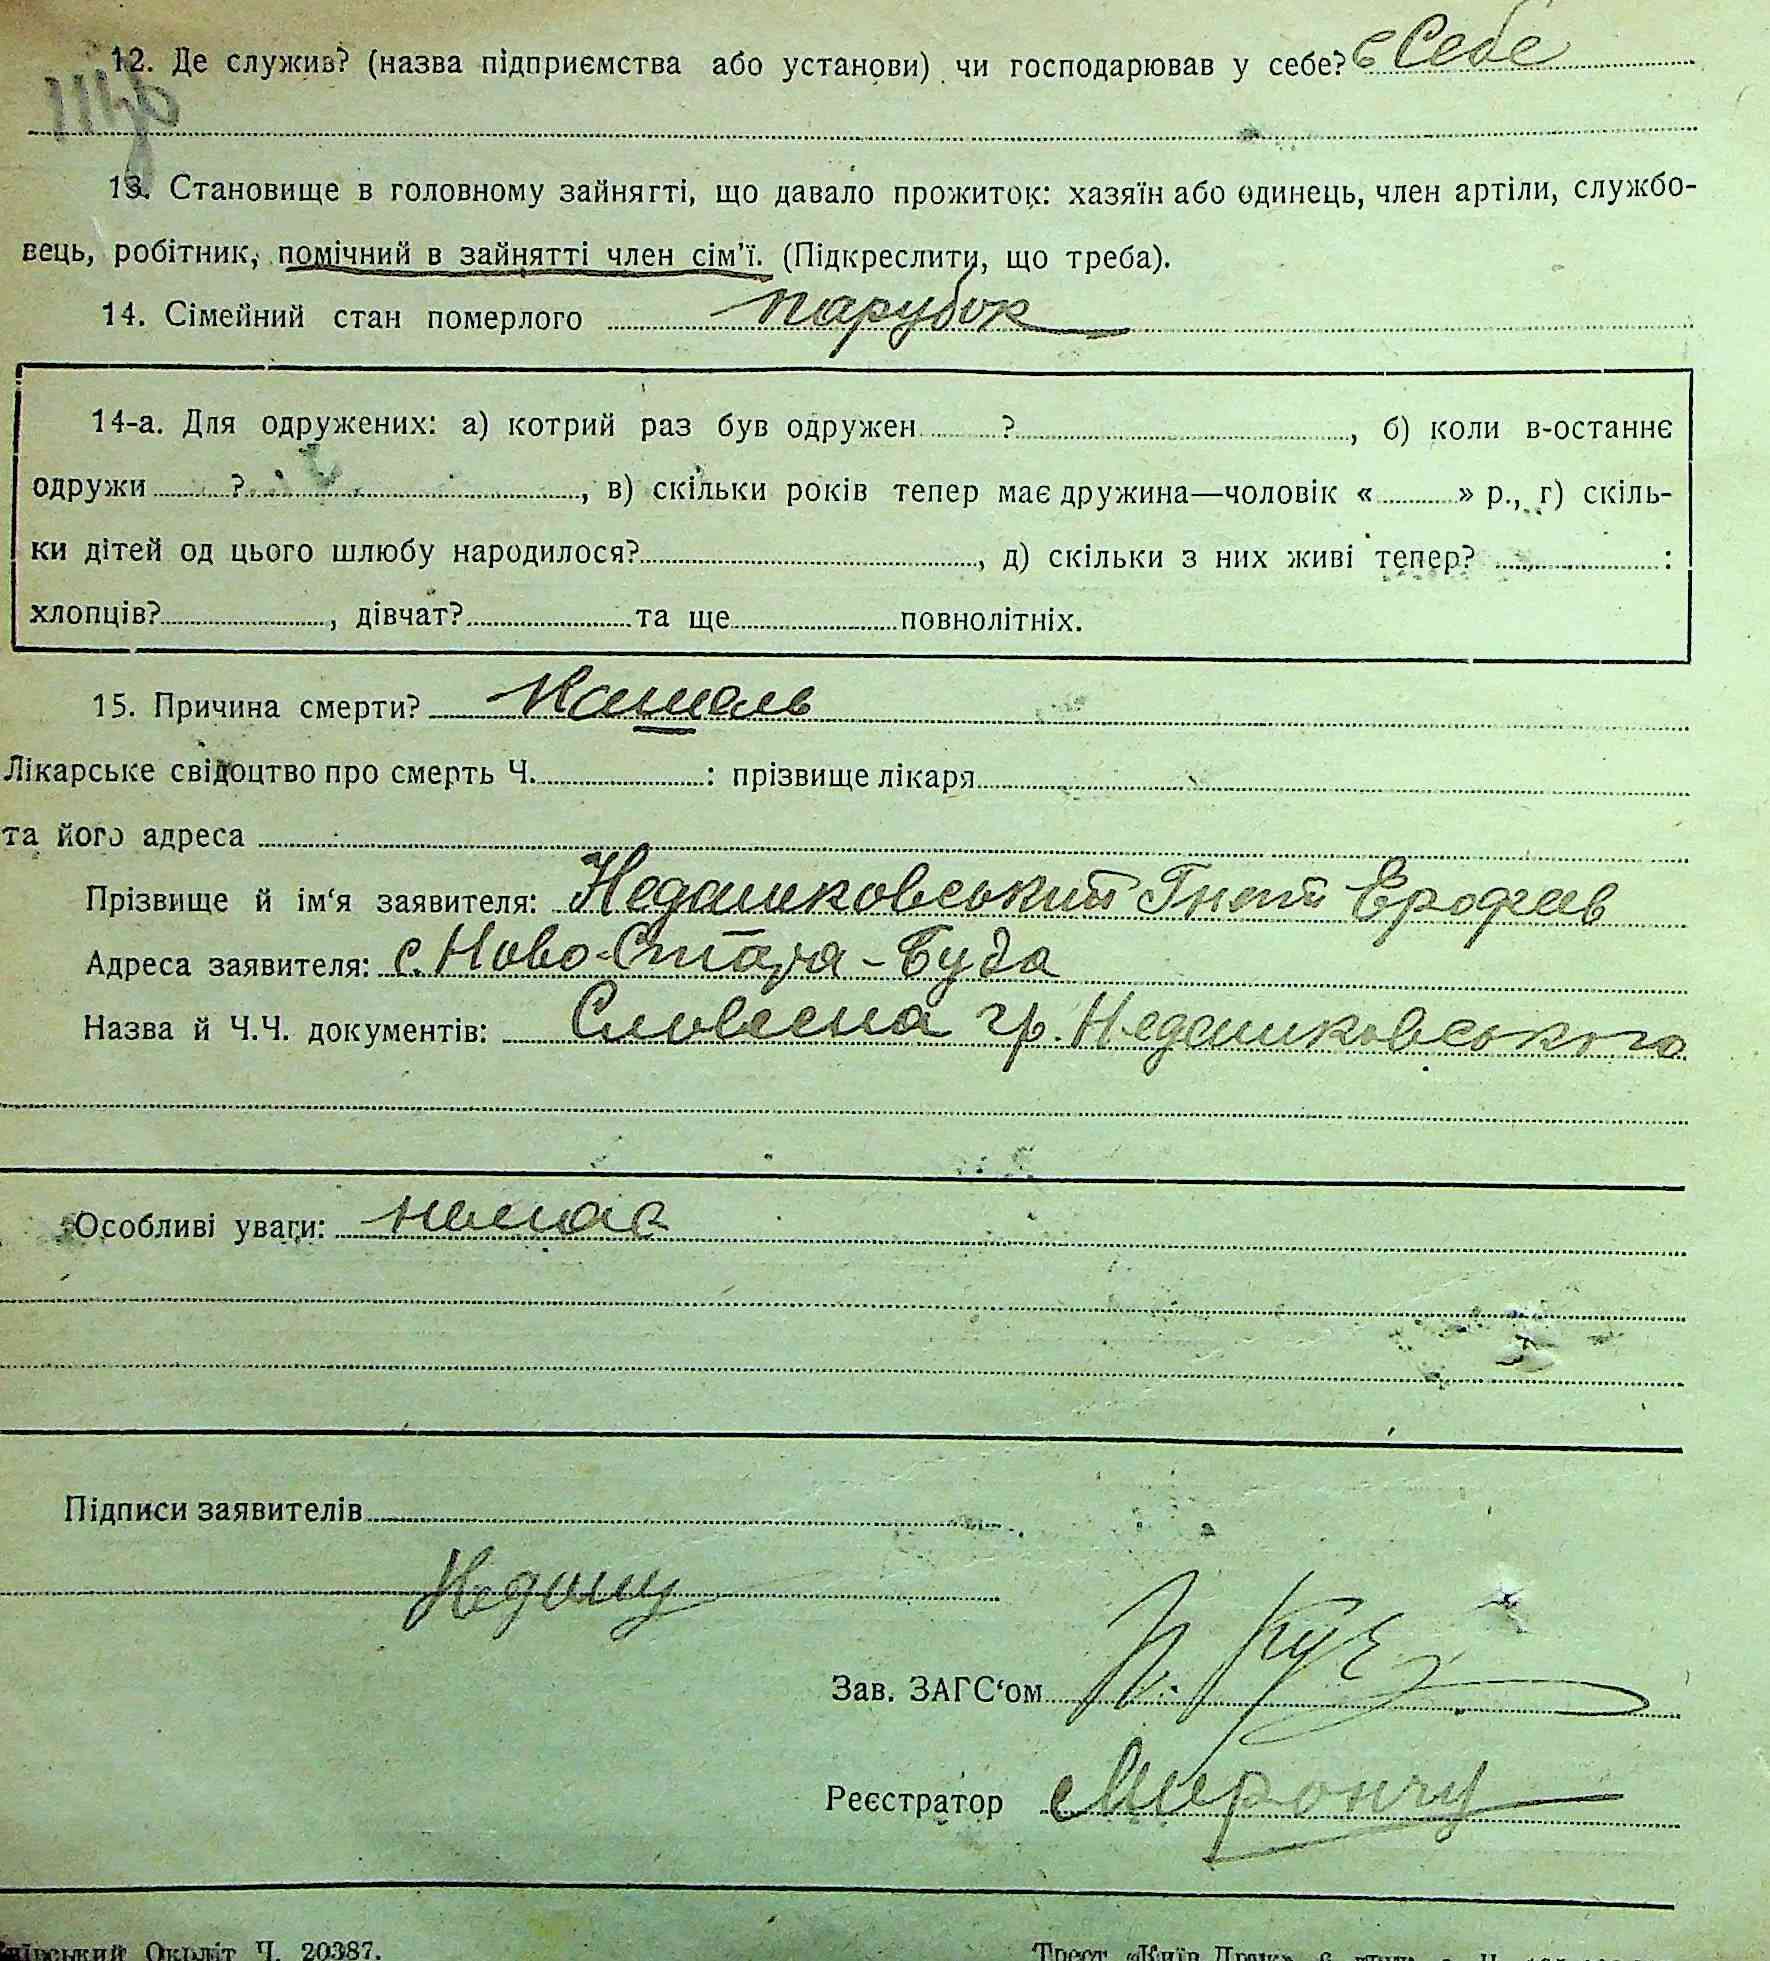 12. Де служив? (назва підприємства або установи) чи господарював у себе? в Себе
13. Становище в головному зайнятті, що давало прожиток: хазяїн або одинець, член артіли, службо-
вець, робітник, помічний в зайнятті член сім'ї. (Підкреслити, що треба).
14. Сімейний стан померлого парубок
14-а. Для одружених: а) котрий раз був одружен ? , б) коли в-останнє
одружи ? , в) скільки років тепер має дружина—чоловік « » р., г) скіль-
ки дітей од цього шлюбу народилося? , д) скільки з них живі тепер? :
хлопців? , дівчат? та ще повнолітніх.
15. Причина смерти? Кашель
Лікарське свідоцтво про смерть Ч. : прізвище лікаря
та його адреса
Прізвище й ім'я заявителя: Недашковський Гнат Ерофеев
Адреса заявителя: с. Ново-Стара-Буда
Назва й Ч.Ч. документів: Словесна гр. Недашковського
Особливі уваги: немає
Підписи заявителів
Недашу
Зав. ЗАГС'ом
Реєстратор Мирончу
Київський Окрліт Ч. 20387.
Трест «Київ-Друк»